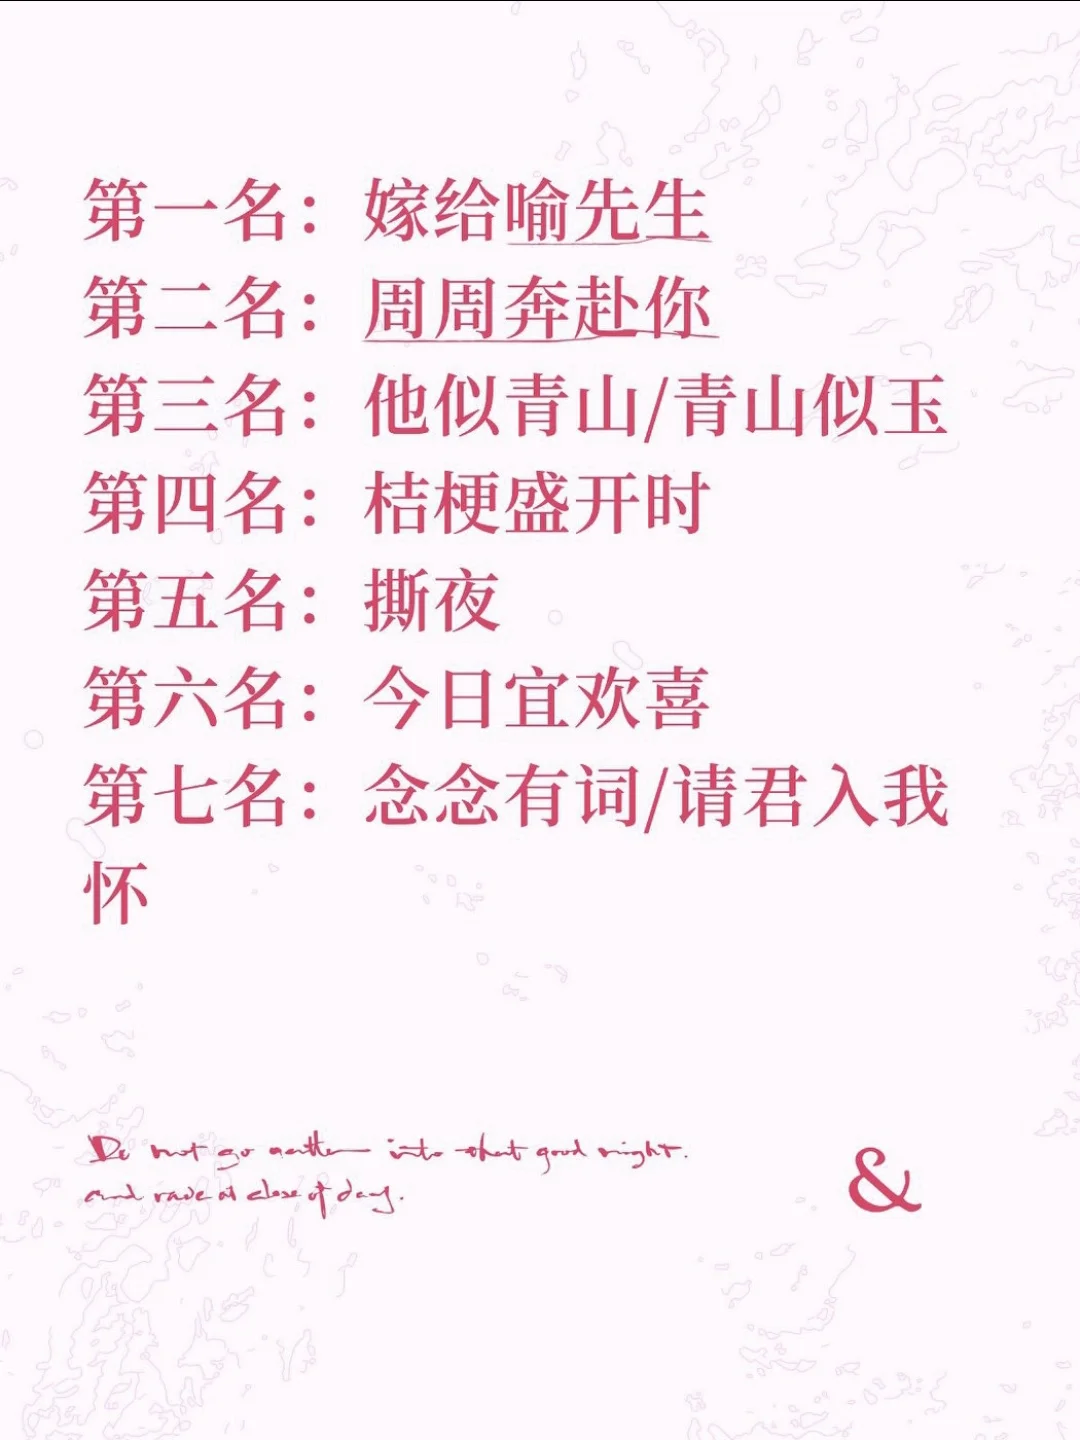 第一名：嫁给喻先生
第二名：周周奔赴你
第三名：他似青山/青山似玉
第四名：桔梗盛开时
第五名：撕夜
第六名：今日宜欢喜
第七名：念念有词/请君入我
怀
Do not go gentle into that good night.
and rave at close of day.
&